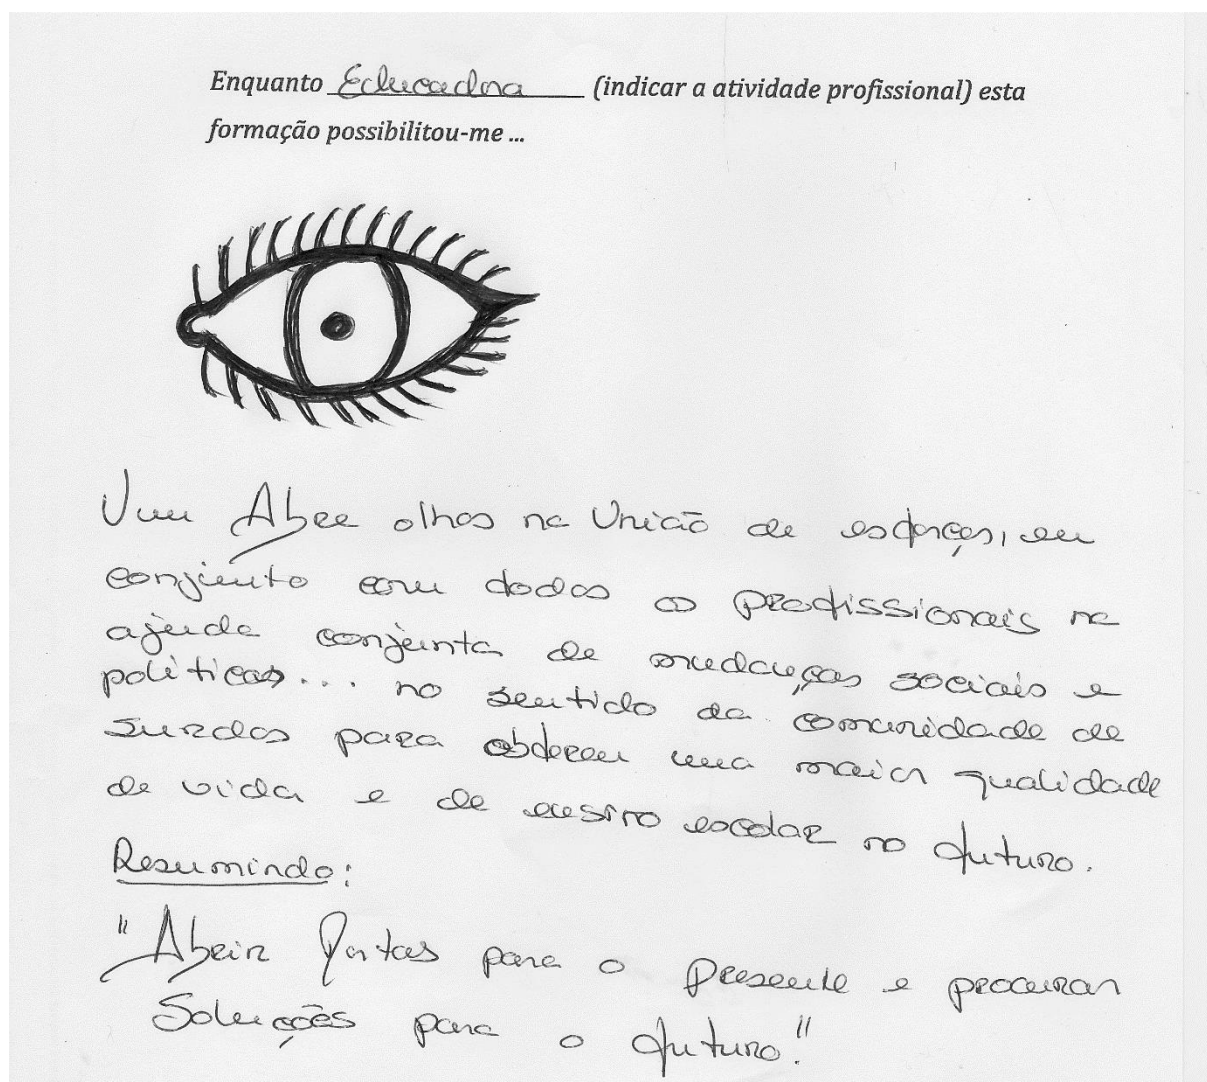 Enquanto Educadora (indicar a atividade profissional) esta
formação possibilitou-me ...
Um Abre olhos na União de esforços, em
conjunto com todos os profissionais na
ajuda conjunta de mudanças sociais e
políticas... no sentido da comunidade de
surdos para obterem uma maior qualidade
de vida e de ensino escolar no futuro.
Resumindo:
"Abrir Portas para o presente e procurar
Soluções para o futuro!"